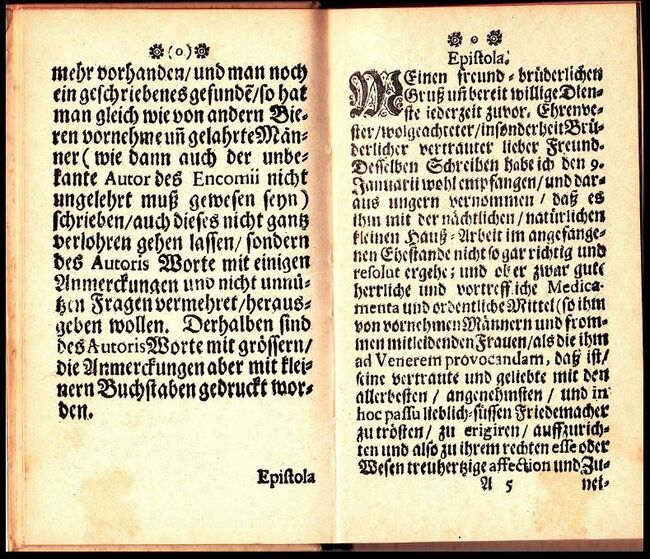 (0)
mehr vorhanden/ und man noch
ein geschriebenes gefundẽ/ so hat
man gleich wie von andern Bie-
ren vornehme uñ gelahrte Män-
ner ( wie dann auch der unbe-
kante Autor des Encomii nicht
ungelehrt muß gewesen seyn )
schrieben/ auch dieses nicht gantz
verlohren gehen lassen/ sondern
des Autoris Worte mit einigen
Anmerckungen und nicht unnü-
tzen Fragen vermehret/ heraus-
geben wollen. Derhalben sind
des Autoris Worte mit grössern/
die Anmerckungen aber mit klei-
nern Buchstaben gedruckt wor-
den.
Epistola
0
Epistola.
MEinen freund-brüderlichen
Gruß uñ bereit willige Dien-
ste iederzeit zuvor. Ehrenve-
ster/ wolgeachreter/ insonderheit Brü-
derlicher vertrauter lieber Freund.
Desselben Schreiben habe ich den 9.
Januarii wohl empfangen/ und dar-
aus ungern vernommen/ daß es
ihm mit der nächtlichen/ natürlichen
kleinen Hauß-Arbeit im angefange-
nen Ehestande nicht so gar richtig und
resolut ergehe; und ob er zwar gute
herrliche und vortreffliche Medica-
menta und ordentliche Mittel (so ihm
von vornehmen Männern und from-
men mitleidenden Frauen/ als die ihm
ad Venerem provocandam, daß ist/
seine vertraute und geliebte mit den
allerbesten/ angenehmsten/ und in
hoc passu lieblich-süssen Friedemacher
zu trösten/ zu erigiren/ auffzurich-
ten und also zu ihrem rechten esse oder
Wesen treuhertzige affection und Zu-
A 5 nei-